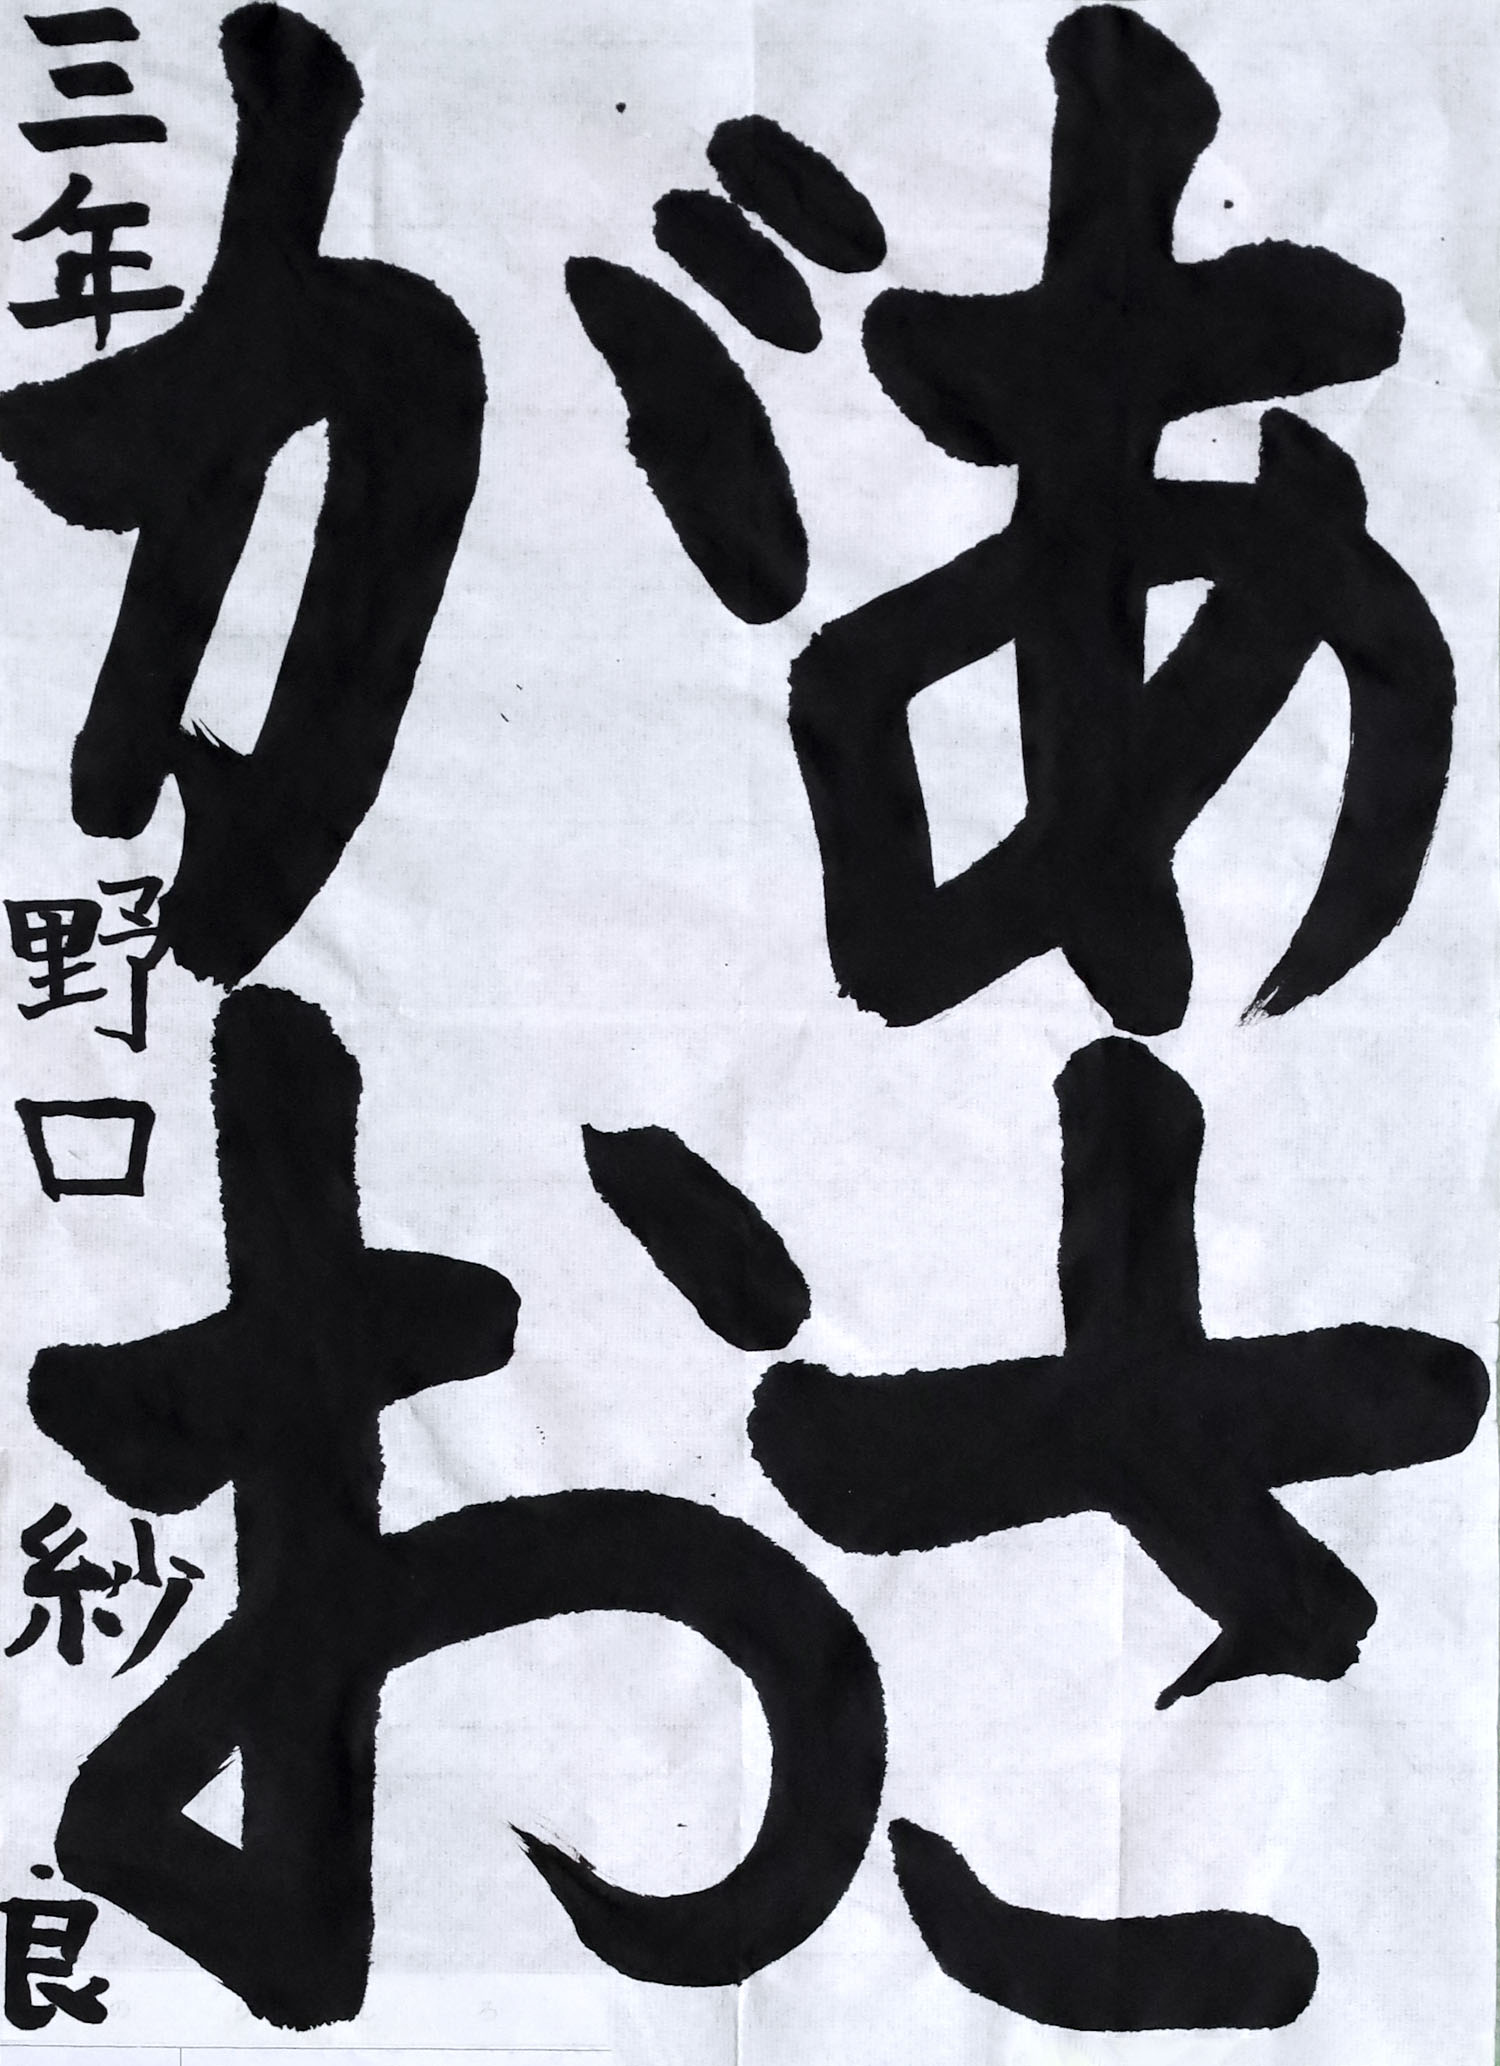 あさ
がお
三年 野口 紗良